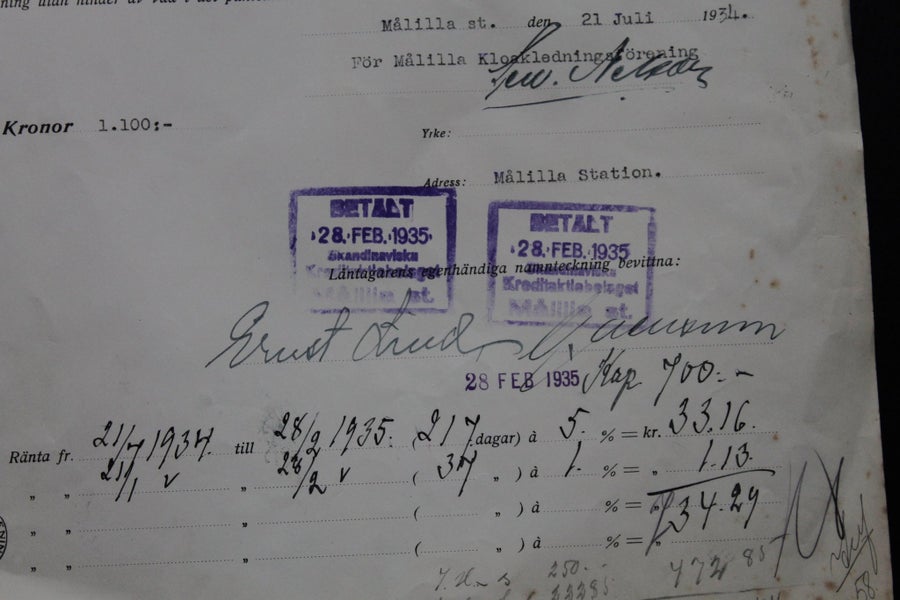 Målilla st. den 21 Juli 1934.
För Målilla Kloakledningsförening
Kronor 1.100:-
Yrke:
Adress: Målilla Station.
BETALT
28. FEB. 1935
Skandinaviska
Kreditaktiebolaget
Målilla st.
BETALT
28. FEB. 1935
Skandinaviska
Kreditaktiebolaget
Målilla st.
Låntagarens egenhändiga namnteckning bevittna:
Ernst Lind
28 FEB 1935 Kap 700:-
Ränta fr. 21/7 1934. till 28/2 1935. (217 dagar) à 5. % = kr. 33.16.
„ „ 21/1 „ 28/2 ( 37 „ ) à 1. % = „ 1.13
„ „ „ ( „ ) à % = 34.29
„ „ „ ( „ ) à % = „
„ „
250.-